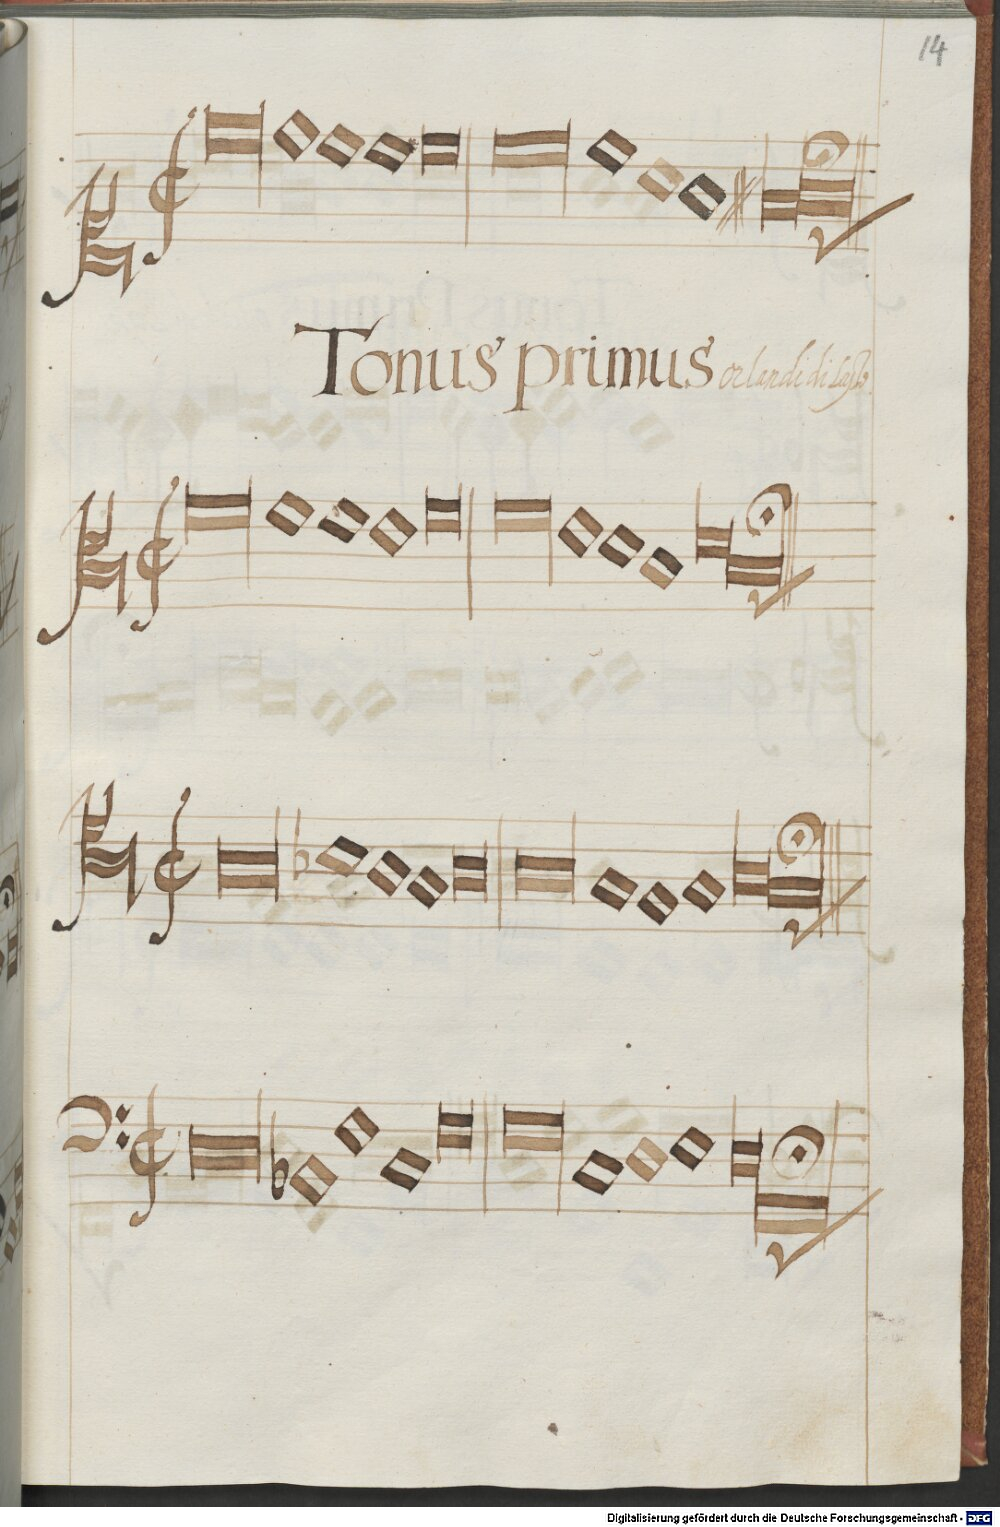 14
Tonus primus orlandi di Lasso
Digitalisierung gefördert durch die Deutsche Forschungsgemeinschaft - DFG